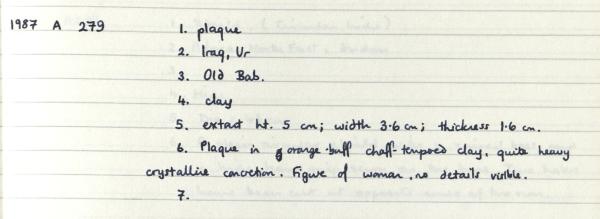 1987 A 279 1. plaque
2. Iraq, Ur
3. Old Bab.
4. clay
5. extant ht. 5 cm; width 3.6 cm; thickness 1.6 cm.
6. Plaque in orange-buff chaff-tempered clay, quite heavy
crystalline concretion. Figure of woman, no details visible.
7.